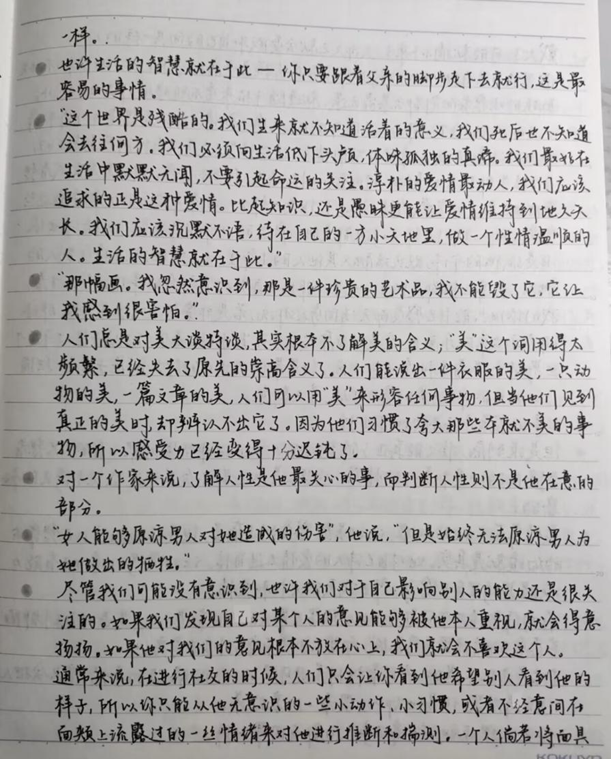 一样。
也许生活的智慧就在于此一你只要跟着父亲的脚步走下去就行，这是最
容易的事情。
"这个世界是残酷的。我们生来就不知道活着的意义，我们死后也不知道
会去往何方。我们必须向生活低下头颅，体味孤独的真谛。我们最好在
生活中默默无闻，不要引起命运的关注。淳朴的爱情最动人，我们应该
追求的正是这种爱情。比起知识，还是愚昧更能让爱情维持到地久天
长。我们应该沉默不语，待在自己的一方小天地里，做一个性情温顺的
人。生活的智慧就在于此。"
"那幅画。我忽然意识到，那是一件珍贵的艺术品，我不能毁了它，它让
我感到很害怕。"
人们总是对美大谈特谈，其实根本不了解美的含义；"美"这个词用得太
频繁，已经失去了原先的崇高含义了。人们能说出一件衣服的美，一只动
物的美，一篇文章的美，人们可以用"美"来形容任何事物，但当他们见到
真正的美时，却辨认不出它了。因为他们习惯了夸大那些本就不美的事
物，所以感受力已经变得十分迟钝了。
对一个作家来说，了解人性是他最关心的事，而判断人性则不是他在意的
部分。
"女人能够原谅男人对她造成的伤害"，他说，"但是始终无法原谅男人为
她做出的牺牲。"
尽管我们可能没有意识到，也许我们对于自己影响别人的能力还是很关
注的。如果我们发现自己对某个人的意见能够被他本人重视，就会得意
扬扬。如果他对我们的意见根本不放在心上，我们就会不喜欢这个人。
通常来说，在进行社交的时候，人们只会让你看到他希望别人看到他的
样子，所以你只能从他无意识的一些小动作，小习惯，或者不经意间在
面颊上流露过的一丝情绪来对他进行推断和揣测。一个人倘若将面具
KOKUYO